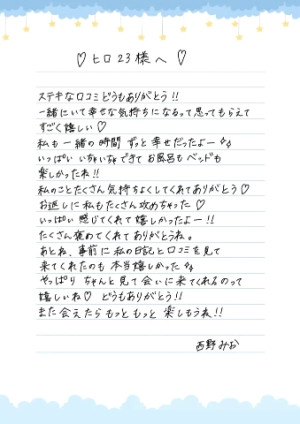 ♡ヒロ23様へ♡
ステキな口コミどうもありがとう!!
一緒にいて幸せな気持ちになるって思ってもらえて
すごく嬉しい♡
私も一緒の時間ずっと幸せだったよー
いっぱいいちゃいちゃできてお風呂もベッドも
楽しかったね!!
私のことたくさん気持ちよくしてくれてありがとう♡
お返しに私もたくさん攻めちゃった♡
いっぱい感じてくれて嬉しかったよー!!
たくさん褒めてくれてありがとうね。
あとね、事前に私の日記と口コミを見て
来てくれたのも本当嬉しかった
やっぱりちゃんと見て会いに来てくれるのって
嬉しいね♡どうもありがとう!!
また会えたらもっともっと楽しもうね!!
西野みお